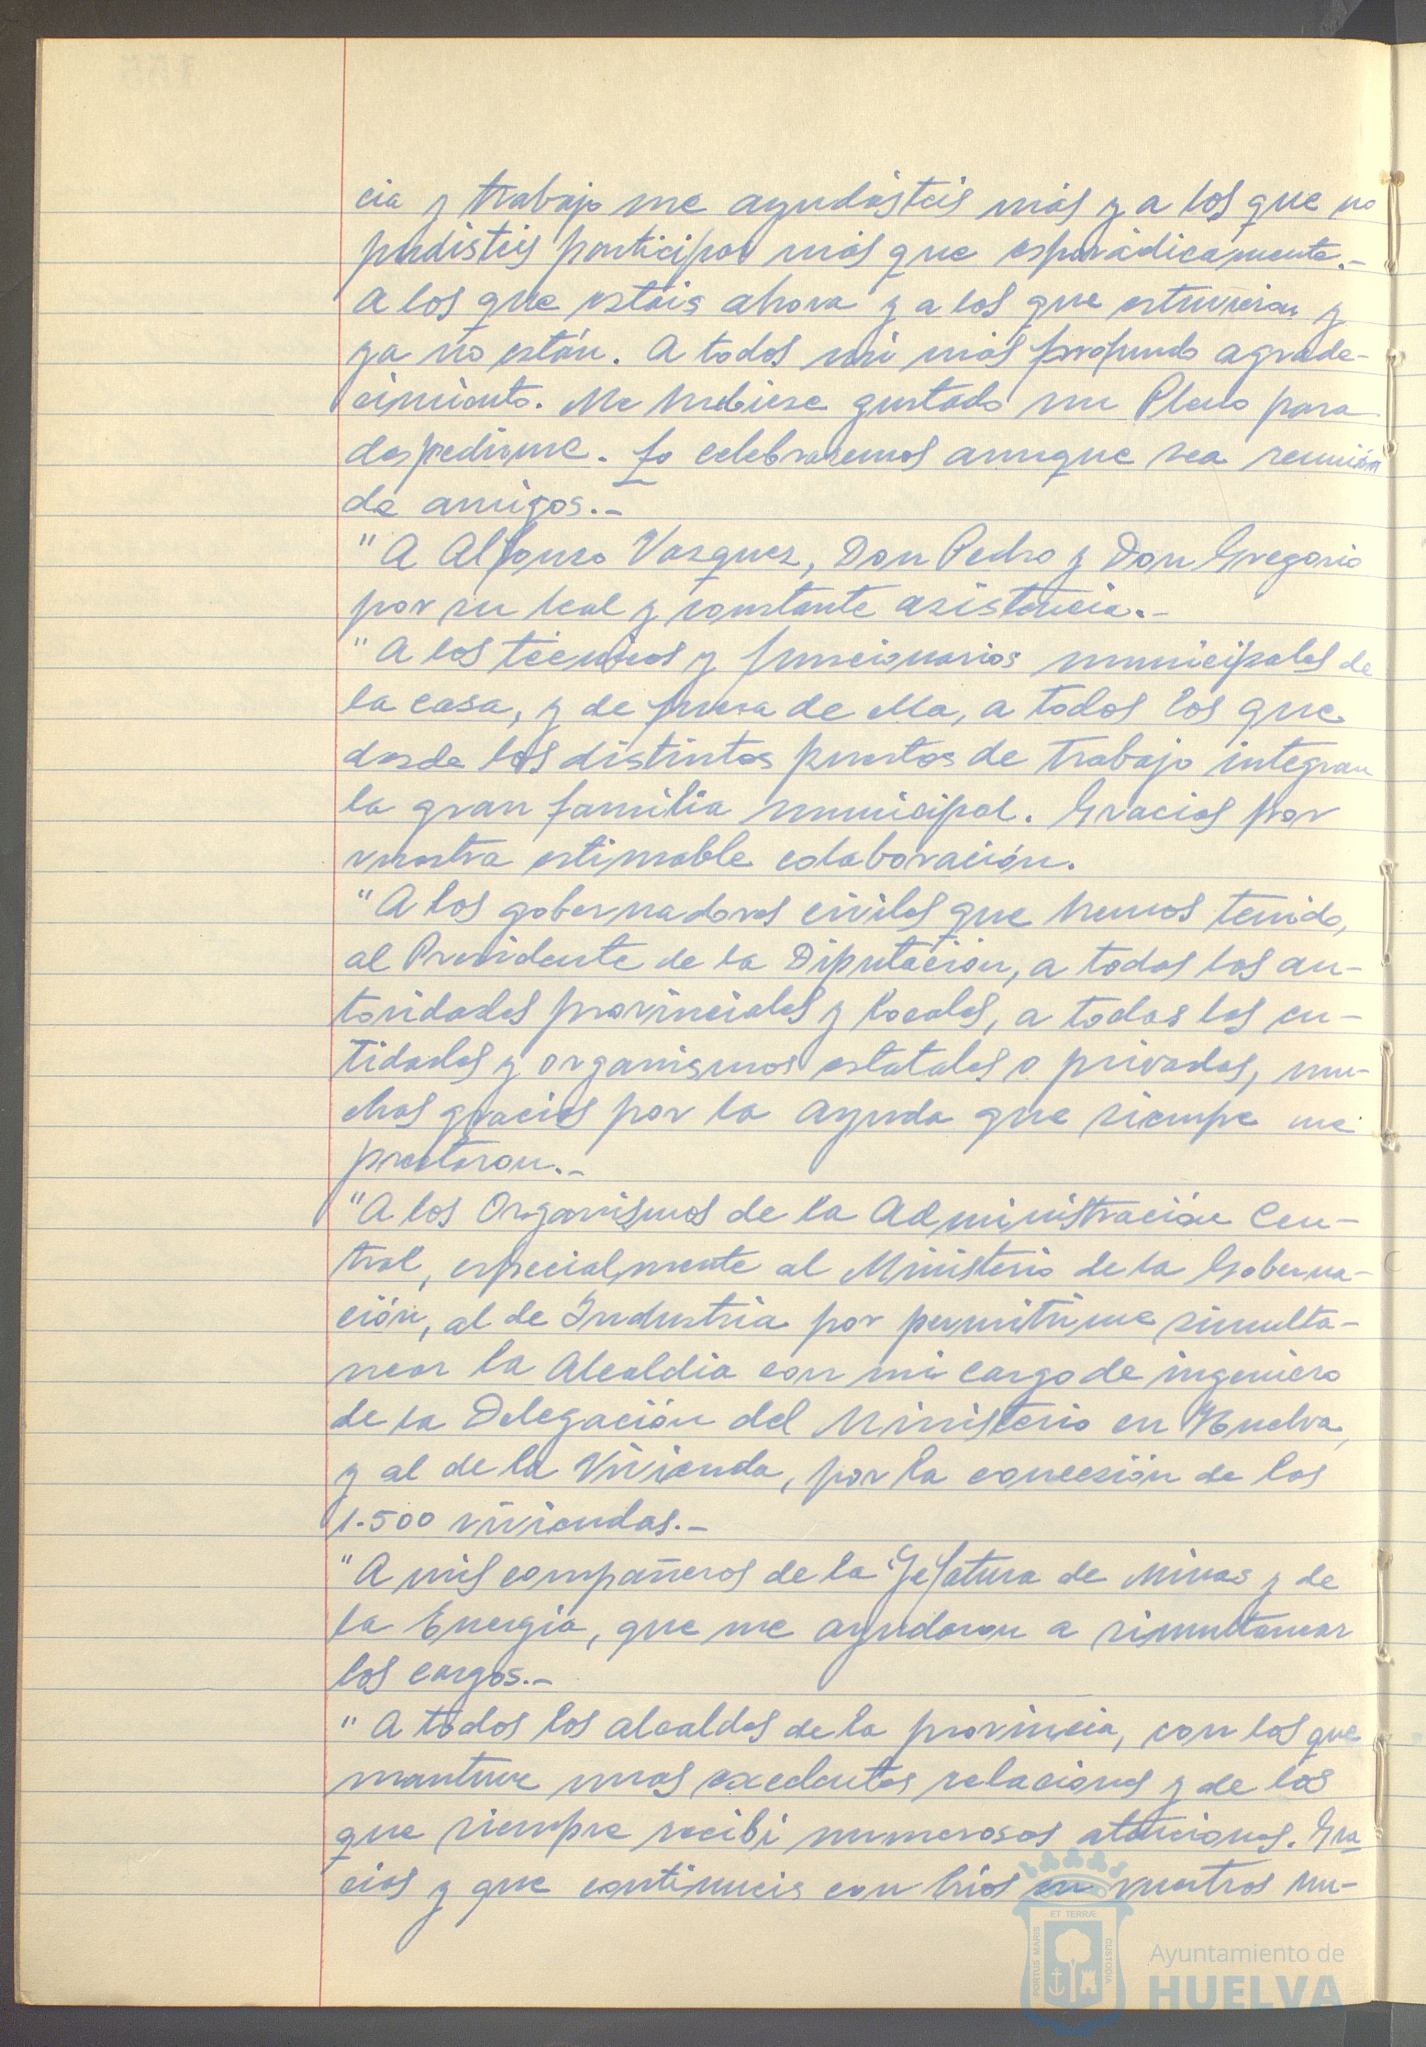 cia y trabajo me ayudásteis más y a los que no
pudisteis participar más que esporádicamente.-
A los que estáis ahora y a los que estuvieron y
ya no están. A todos mi más profundo agrade-
cimiento. Me hubiese gustado un Pleno para
despedirme. Lo celebraremos aunque sea reunión
de amigos.-
"A Alfonso Vazquez, Don Pedro y Don Gregorio
por su leal y constante asistencia.-
"A los técnicos y funcionarios municipales de
la casa, y de fuera de ella, a todos los que
desde los distintos puestos de trabajo integran
la gran familia municipal. Gracias por
vuestra estimable colaboración.
"A los gobernadores civiles que hemos tenido,
al Presidente de la Diputación, a todas las au-
toridades provinciales y locales, a todas las en-
tidades y organismos estatales o privados, mu-
chas gracias por la ayuda que siempre me
prestaron.-
"A los Organismos de la Administración Cen-
tral, especialmente al Ministerio de la Goberna-
ción, al de Industria por permitirme simulta-
near la Alcaldía con mi cargo de ingeniero
de la Delegación del Ministerio en Huelva,
y al de la Vivienda, por la concesión de las
1.500 viviendas.-
"A mis compañeros de la Jefatura de Minas y de
la Energía, que me ayudaron a simultanear
los cargos.-
"A todos los alcaldes de la provincia, con los que
mantuve unas excelentes relaciones y de los
que siempre recibí numerosas atenciones. Gra
cias y que continueis con bríos en vuestros mu-
PORTUS MARIS
ET TERRÆ
CUSTODIA
Ayuntamiento de
HUELVA